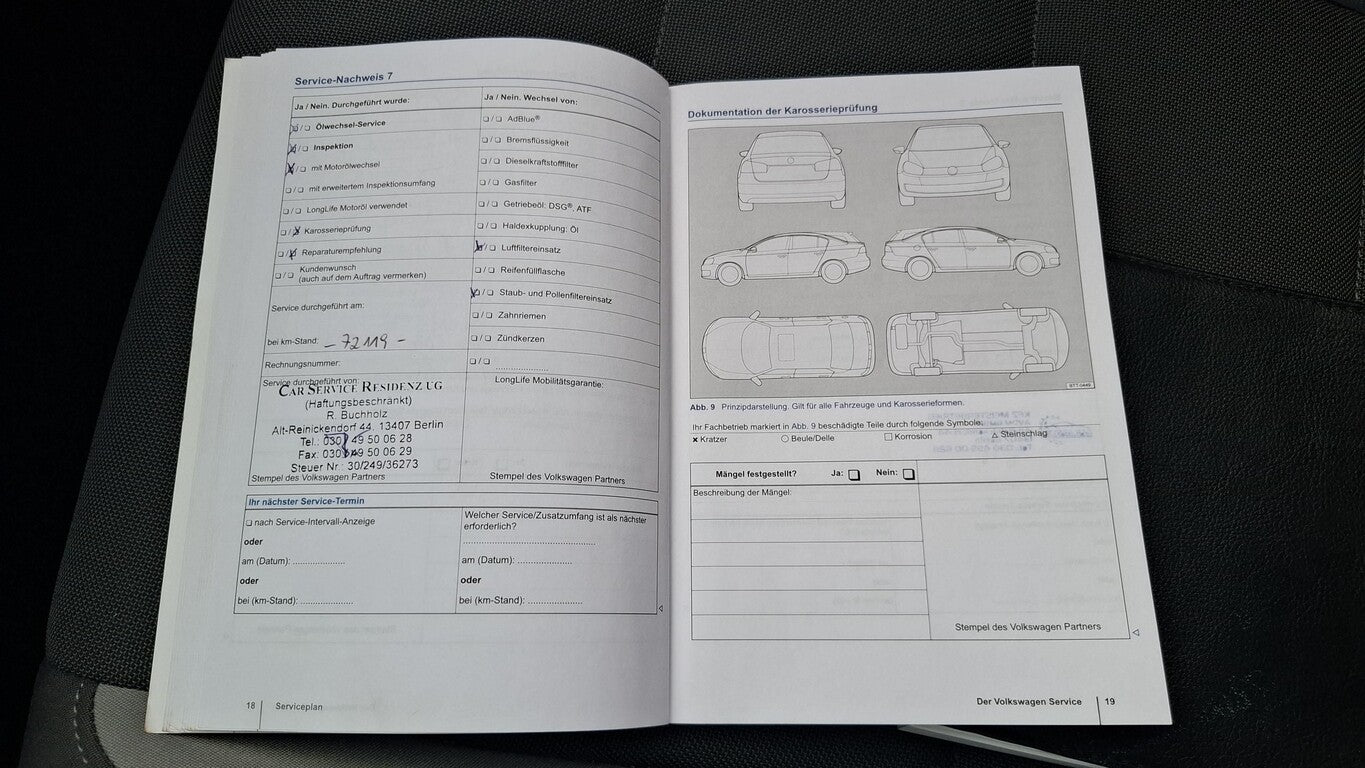 Service-Nachweis 7
Ja / Nein. Durchgeführt wurde:
☒/❏ Ölwechsel-Service
☒/❏ Inspektion
☒/❏ mit Motorölwechsel
❏/❏ mit erweitertem Inspektionsumfang
❏/❏ LongLife Motoröl verwendet
❏/☒ Karosserieprüfung
❏/☒ Reparaturempfehlung
❏/❏ Kundenwunsch
(auch auf dem Auftrag vermerken)
Service durchgeführt am:
bei km-Stand: – 72119 –
Rechnungsnummer:
Service durchgeführt von:
CAR SERVICE RESIDENZ UG
(Haftungsbeschränkt)
R. Buchholz
Alt-Reinickendorf 44, 13407 Berlin
Tel.: 030 49 50 06 28
Fax: 030 49 50 06 29
Steuer Nr.: 30/249/36273
Stempel des Volkswagen Partners
Ja / Nein. Wechsel von:
❏/❏ AdBlue®
❏/❏ Bremsflüssigkeit
❏/❏ Dieselkraftstofffilter
❏/❏ Gasfilter
❏/❏ Getriebeöl: DSG®, ATF
❏/❏ Haldexkupplung: Öl
☒/❏ Luftfiltereinsatz
❏/❏ Reifenfüllflasche
☒/❏ Staub- und Pollenfiltereinsatz
❏/❏ Zahnriemen
❏/❏ Zündkerzen
❏/❏ ..................
LongLife Mobilitätsgarantie:
Stempel des Volkswagen Partners
Ihr nächster Service-Termin
❏ nach Service-Intervall-Anzeige
oder
am (Datum): ..................
oder
bei (km-Stand): ..................
Welcher Service/Zusatzumfang ist als nächster
erforderlich?
..............................................
am (Datum): ..................
oder
bei (km-Stand): ..................
18
Serviceplan
Dokumentation der Karosserieprüfung
BTT-0449
Abb. 9 Prinzipdarstellung. Gilt für alle Fahrzeuge und Karosserieformen.
Ihr Fachbetrieb markiert in Abb. 9 beschädigte Teile durch folgende Symbole:
✕ Kratzer ○ Beule/Delle □ Korrosion △ Steinschlag
Mängel festgestellt? Ja: ❏ Nein: ❏
Beschreibung der Mängel:
Stempel des Volkswagen Partners
Der Volkswagen Service
19